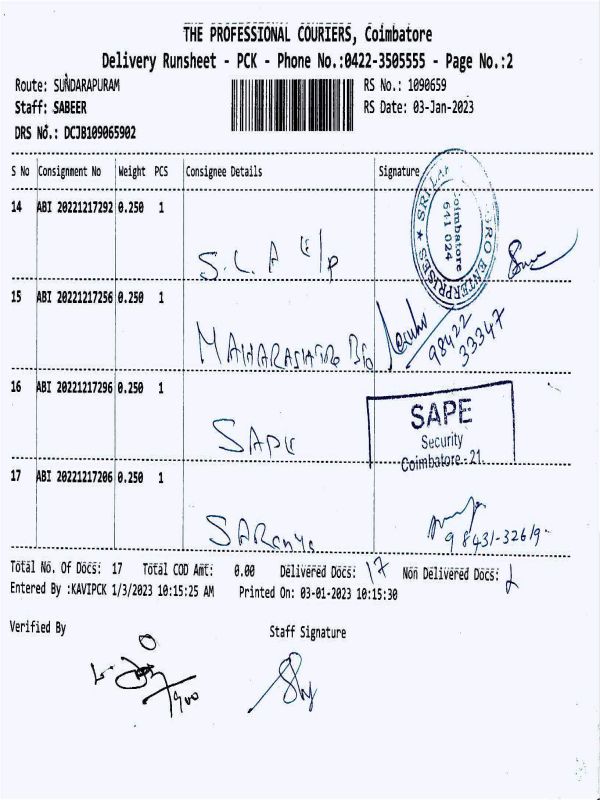 THE PROFESSIONAL COURIERS, Coimbatore
Delivery Runsheet - PCK - Phone No.:0422-3505555 - Page No.:2
Route: SUNDARAPURAM RS No.: 1090659
Staff: SABEER RS Date: 03-Jan-2023
DRS No.: DCJB109065902
S No Consignment No Weight PCS Consignee Details Signature
14 ABI 20221217292 0.250 1
S.L.A E/p
ENTERPRISES
Coimbatore
641 024
15 ABI 20221217256 0.250 1
98422
33347
16 ABI 20221217296 0.250 1
SAPE
SAPE
Security
Coimbatore - 21.
17 ABI 20221217206 0.250 1
Saranya
98431-32619
Total No. Of Docs: 17 Total COD Amt: 0.00 Delivered Docs: 17 Non Delivered Docs:
Entered By :KAVIPCK 1/3/2023 10:15:25 AM Printed On: 03-01-2023 10:15:30
Verified By Staff Signature